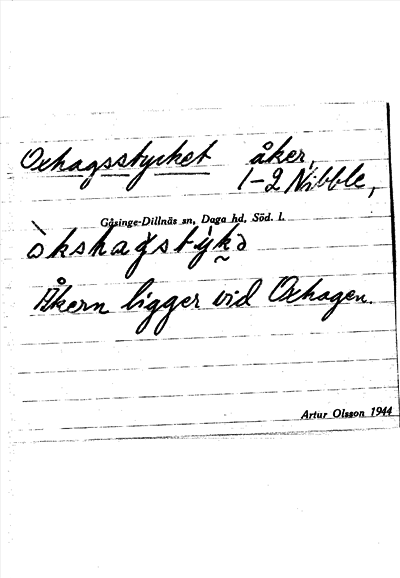 Oxhagsstycket åker,
1-2 Nibble,
Gåsinge-Dillnäs sn, Daga hd, Söd. l.
òkshagstyk̰ə
Åkern ligger vid Oxhagen.
Artur Olsson 1944